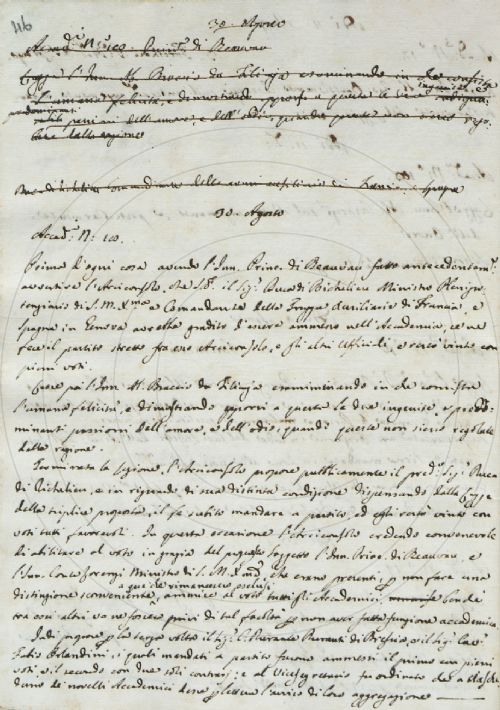 46
30. Agosto
Accad.ª N.º 120. di Beauvau
Lesse l'Inn. M. Baccio da Filicaja esaminando in che consista
l'umana felicità, e dimostrando opporsi a questa le due ingenite, e
predominanti passioni dell'amore, e dell'odio, quando queste non sieno rego-
late dalla ragione
Duca di Richelieu Comandante delle armi ausiliarie di Francia, e Spagna
30. Agosto
Accad.ª N.º 120.
Prima d'ogni cosa avendo l'Inn. Princ. di Beauvau fatto antecedentem.e
avvertire l'Arciconsolo, che S.E. il Sig.r Duca di Richelieu Ministro Plenipo-
tenziario di S. M. X.ma e Comandante della Truppa Ausiliaria di Francia, e
Spagna in Genova avrebbe gradito d'essere ammesso nell'Accademia, ce ne
fece il partito stretto fra esso Arciconsolo, e gli altri Uffiziali, e restò vinto con
pieni voti.
Lesse poi l'Inn. M. Baccio da Filicaja esaminando in che consista
l'umana felicità, e dimostrando opporsi a questa le due ingenite, e predo-
minanti passioni dell'amore, e dell'odio, quando queste non sieno regolate
dalla ragione.
Terminata la lezione, l'Arciconsolo propose pubblicamente il pred.º Sig.r Duca
di Richelieu, e in riguardo di sua distinta condizione dispensando dalla legge
della triplice proposta, il fe subito mandare a partito, ed egli restò vinto con
voti tutti favorevoli. In questa occasione l'Arciconsolo credendo convenevole
l'abilitare al voto in grazia del Soggetto l'Inn. Princ. di Beauvau, e
l'Inn. Conte Lorenzi Ministro di S. M. X.ma, che erano presenti, p non fare una
distinzione sconveniente a quei che rimanevano esclusi, ammise al voto tutti gli Accademici, benchè
tra essi altri ve ne fossero privi di tal facoltà p non aver fatta funzione accademica.
Indi propose p la terza volta il Sig.r C. Durante Duranti di Brescia, e il Sig.r Cav.
Orlandini, i quali mandati a partito furono ammessi il primo con pieni
voti, e il secondo con due soli contrarj: e al Vicesegretario fu ordinato che a ciasche-
duno de novelli Accademici desse p lettera l'avviso di loro aggregazione